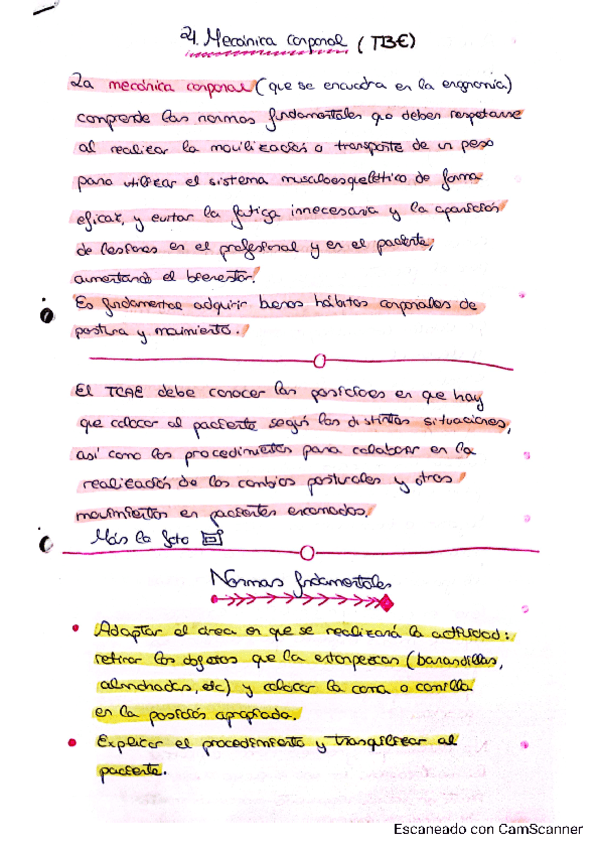 21. Mecánica corporal (TBE)
La mecánica corporal (que se encuadra en la ergonomía)
comprende las normas fundamentales que deben respetarse
al realizar la movilización o transporte de un peso
para utilizar el sistema musculoesquelético de forma
eficaz, y evitar la fatiga innecesaria y la aparición
de lesiones en el profesional y en el paciente,
aumentando el bienestar.
Es fundamental adquirir buenos hábitos corporales de
postura y movimiento.
El TCAE debe conocer las posiciones en que hay
que colocar al paciente según las distintas situaciones,
así como los procedimientos para colaborar en la
realización de los cambios posturales y otros
movimientos en pacientes encamados.
Más la foto
Normas fundamentales
• Adaptar el área en que se realizará la actividad:
retirar los objetos que la entorpezcan (barandillas,
almohadas, etc) y colocar la cama o camilla
en la posición apropiada.
• Explicar el procedimiento y tranquilizar al
paciente.
Escaneado con CamScanner